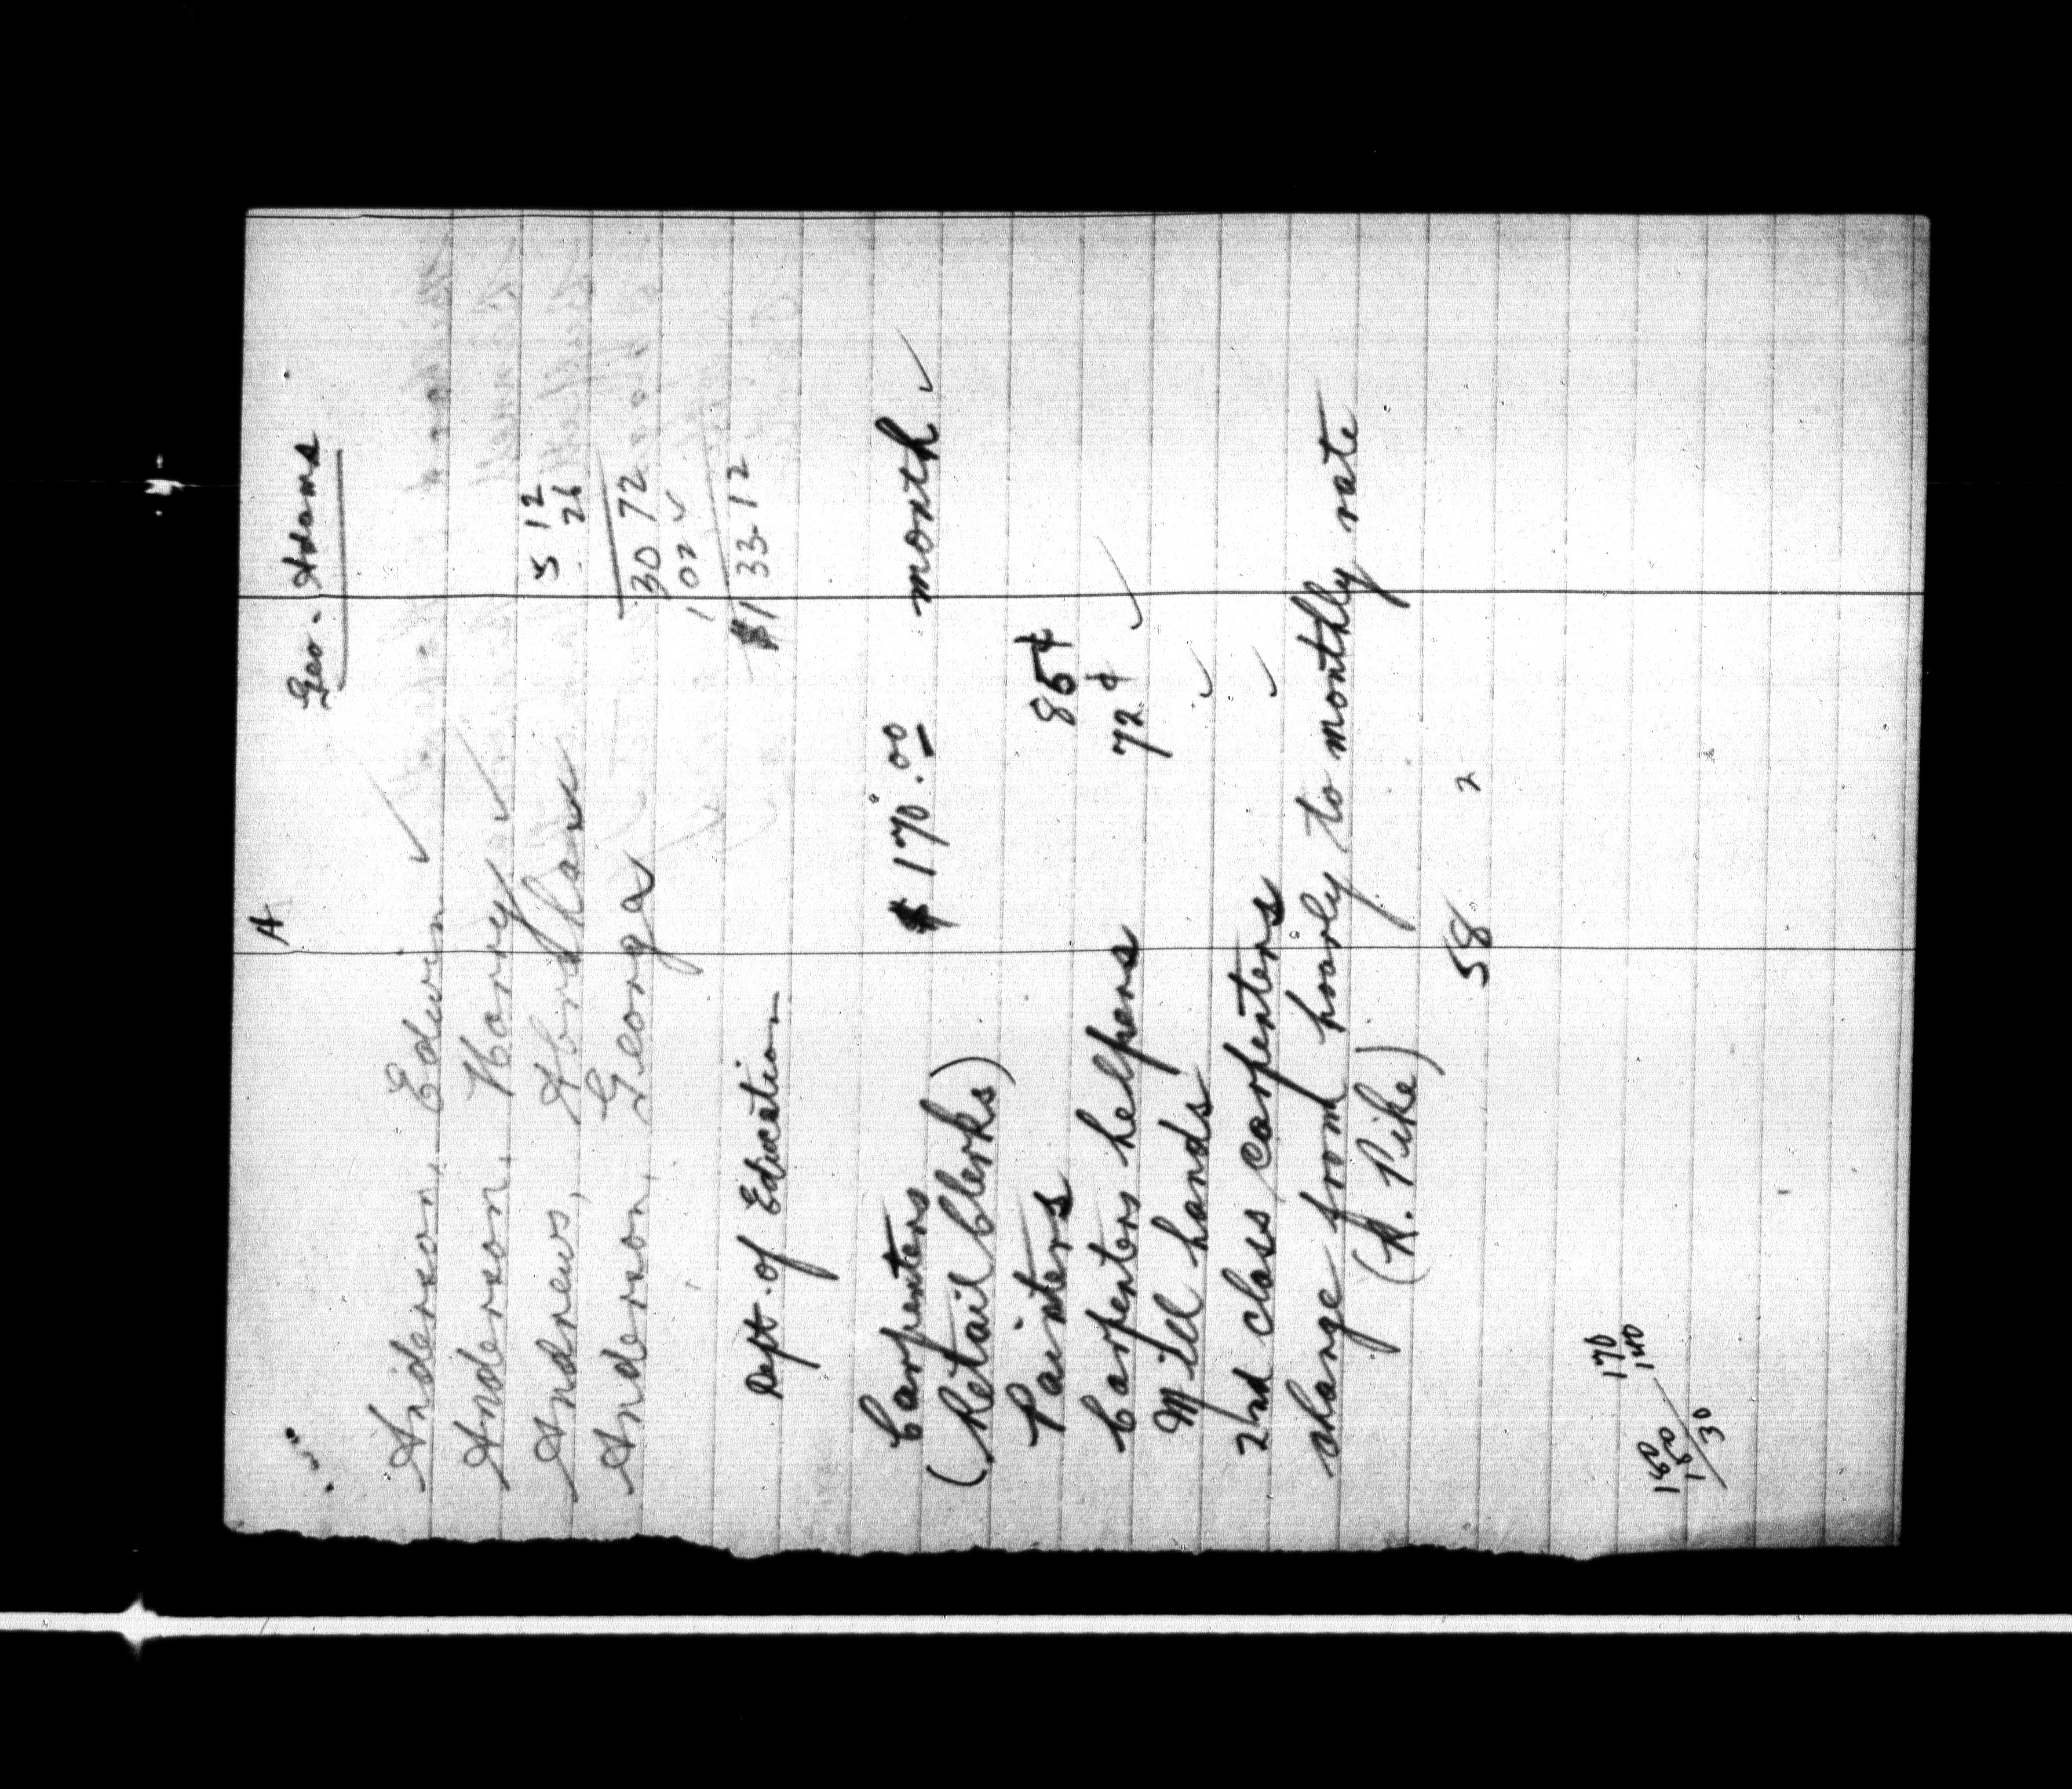 A
Geo. Adams
Anderson, Edwin ✓
Anderson, Harry ✓
Andrews, Abraham
5 12
26
Anderson, George
30 72
102 4
$133.12
Dept. of Education
Carpenters $170.00 month ✓
(Retail Clerks)
Painters 85¢
Carpenters helpers 72¢ ✓
Mill hands ✓
2nd class carpenters ✓
change from hourly to monthly rate
(A. Pike)
58 2
170
140
180
150
30